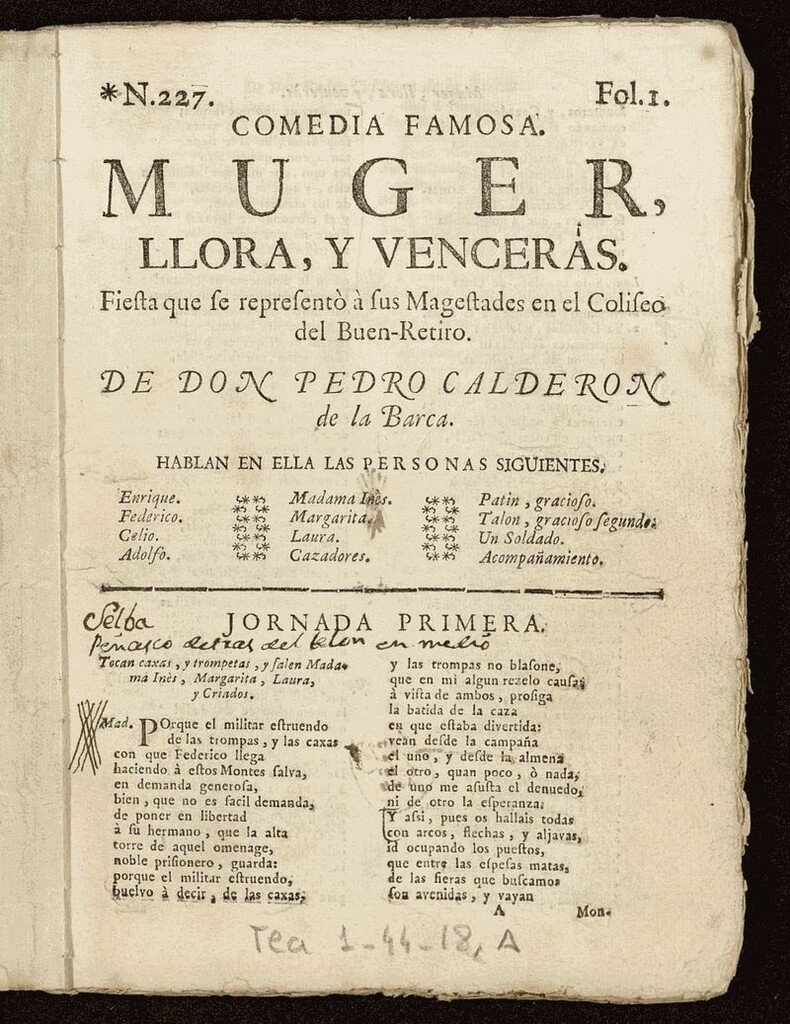 *N.227. Fol.1.
COMEDIA FAMOSA.
MUGER,
LLORA, Y VENCERÀS.
Fieſta que ſe repreſentò à ſus Mageſtades en el Coliſeo
del Buen-Retiro.
DE DON PEDRO CALDERON
de la Barca.
HABLAN EN ELLA LAS PERSONAS SIGUIENTES.
Enrique. Madama Inès. Patin, gracioſo.
Federico. Margarita. Talon, gracioſo ſegundo.
Celio. Laura. Un Soldado.
Adolfo. Cazadores. Acompañamiento.
Selba
JORNADA PRIMERA.
Peñasco detras del telon en medio
Tocan caxas, y trompetas, y ſalen Mada-
ma Inès, Margarita, Laura,
y Criados.
Mad. POrque el militar eſtruendo
de las trompas, y las caxas
con que Federico llega
haciendo à eſtos Montes ſalva,
en demanda generoſa,
bien, que no es facil demanda,
de poner en libertad
à ſu hermano, que la alta
torre de aquel omenage,
noble priſionero, guarda:
porque el militar eſtruendo,
buelvo à decir, de las caxas,
y las trompas no blaſone,
que en mi algun rezelo cauſa,
à viſta de ambos, proſiga
la batida de la caza
en que eſtaba divertida:
vean deſde la campaña
el uno, y deſde la almena
el otro, quan poco, ò nada,
de uno me aſuſta el denuedo,
ni de otro la eſperanza.
Y aſsi, pues os hallais todas
con arcos, flechas, y aljavas,
id ocupando los pueſtos,
que entre las eſpeſas matas,
de las fieras que buſcamos
ſon avenidas, y vayan
A Mon-
Tea 1-44-18, A